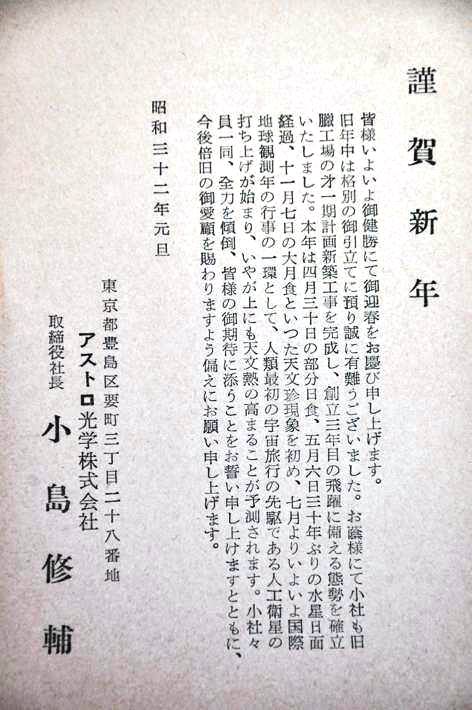 謹賀新年
皆様いよいよ御健勝にて御迎春をお慶び申し上げます。
旧年中は格別の御引立てに預り誠に有難うございました。お蔭様にて小社も旧
臘工場の才一期計画新築工事を完成し、創立三年目の飛躍に備える態勢を確立
いたしました。本年は四月三十日の部分日食、五月六日三十年ぶりの水星日面
経過、十一月七日の大月食といつた天文珍現象を初め、七月よりいよいよ国際
地球観測年の行事の一環として、人類最初の宇宙旅行の先駆である人工衛星の
打ち上げが始まり、いやが上にも天文熱の高まることが予測されます。小社々
員一同、全力を傾倒、皆様の御期待に添うことをお誓い申し上げますとともに、
今後倍旧の御愛顧を賜わりますよう偏えにお願い申し上げます。
昭和三十二年元旦
東京都豊島区要町三丁目二十八番地
アストロ光学株式会社
取締役社長 小島修輔